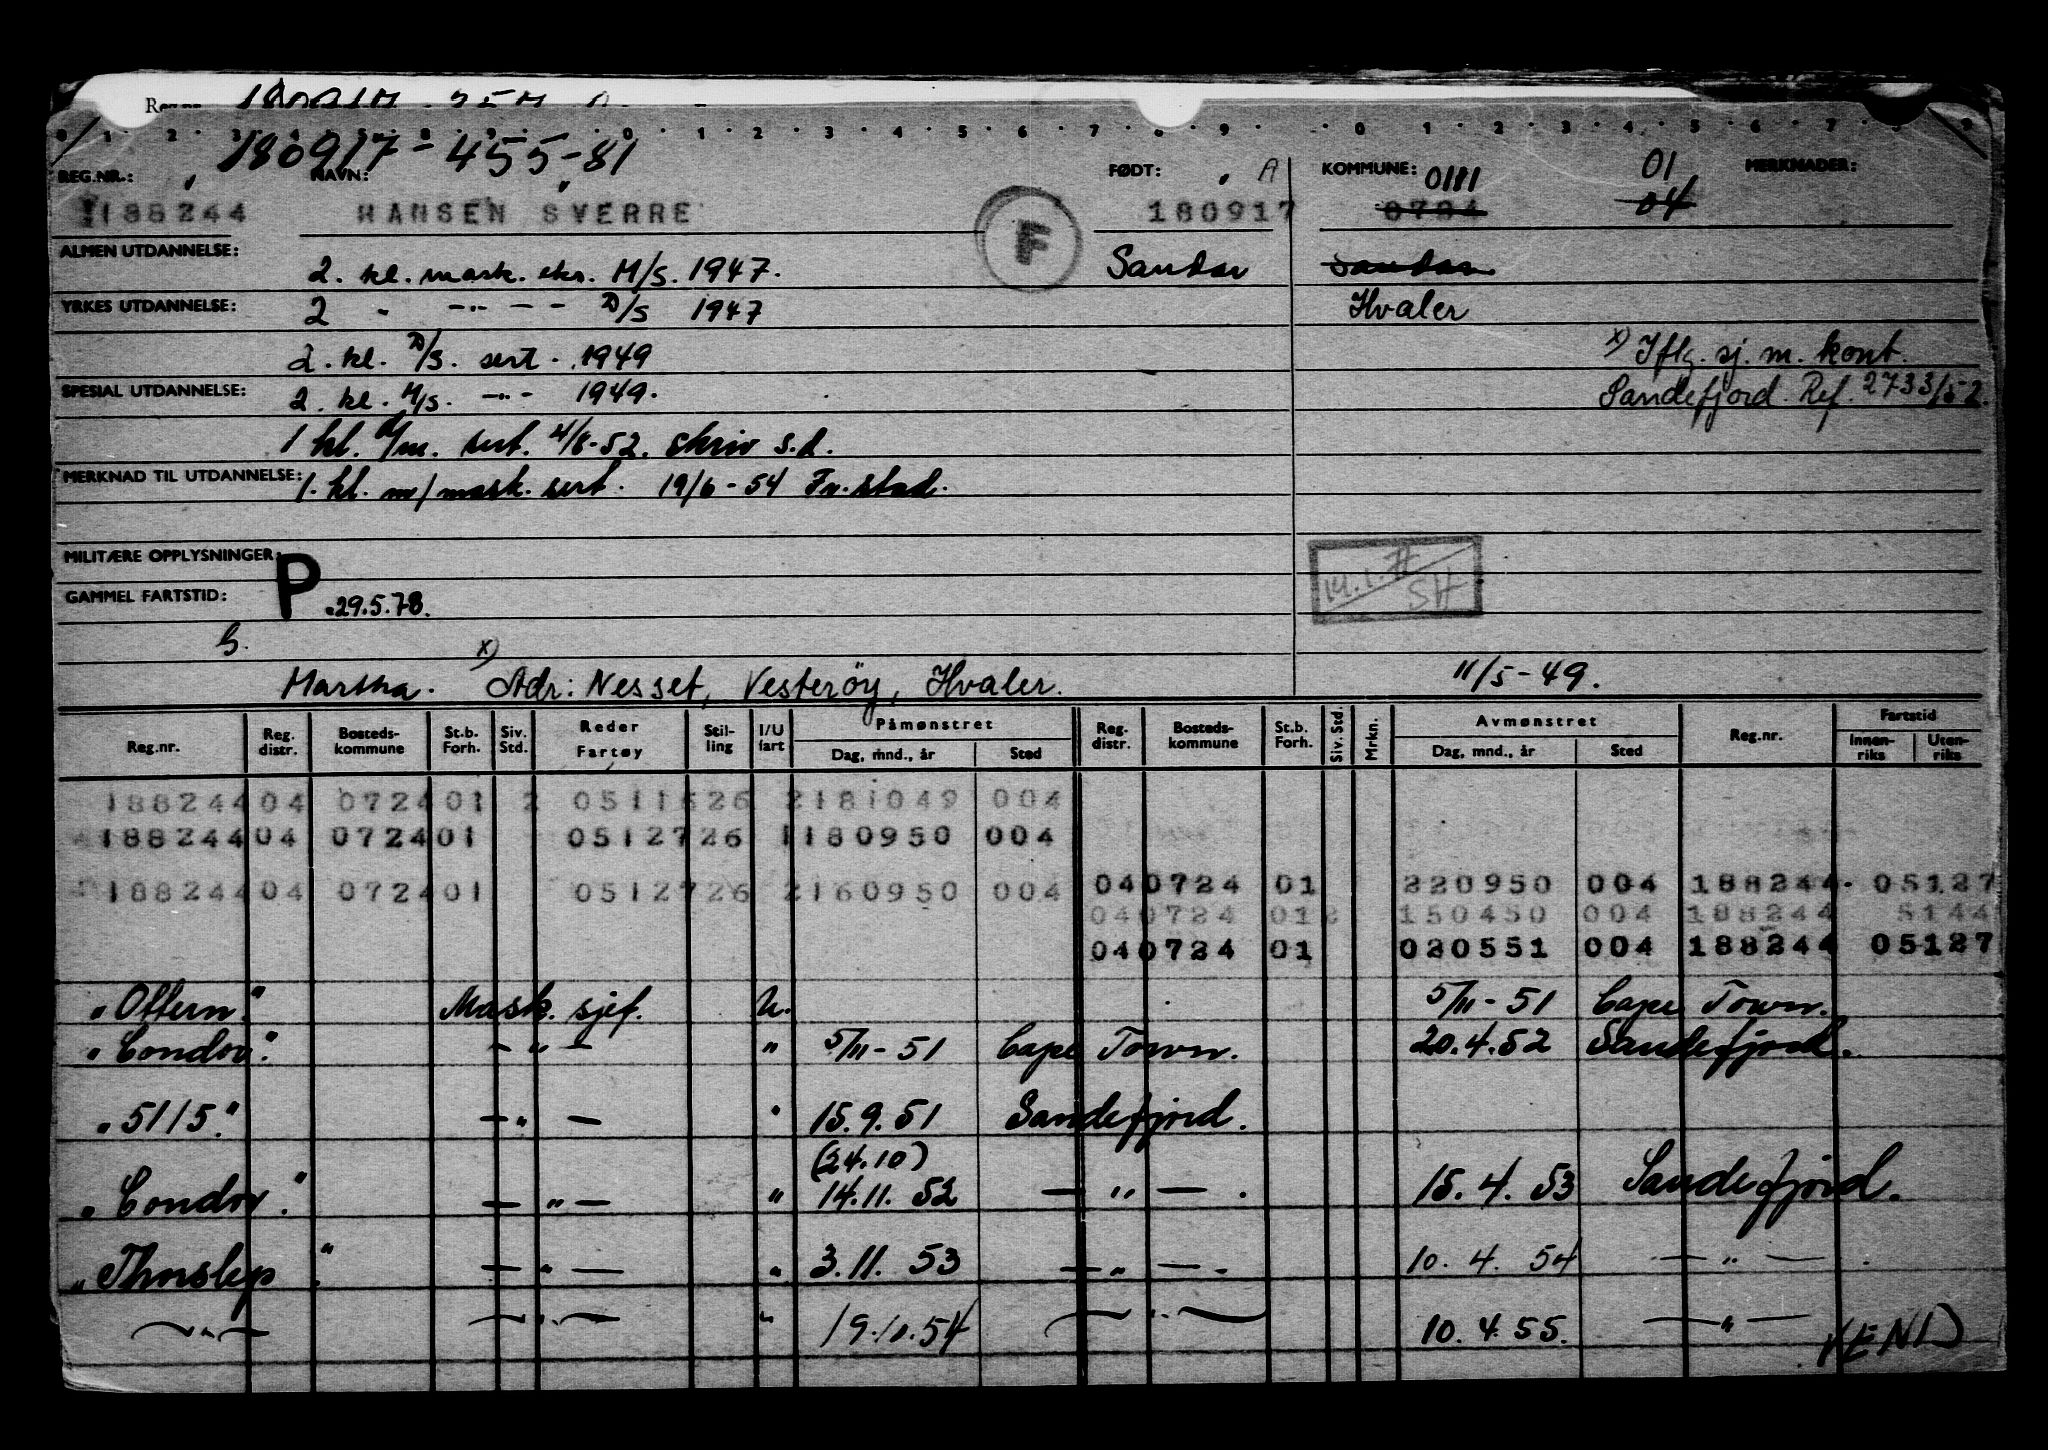 180917-455-81
REG.NR.: NAVN: FØDT: A KOMMUNE: 0181 01 MERKNADER:
188244 HANSEN SVERRE F 180917 0724 04
ALMEN UTDANNELSE: 2. kl. mask. eks. M/S. 1947. Sandar Sandar
YRKES UTDANNELSE: 2 " -"- - - D/S 1947 Hvaler
2. kl. D/S. sert. 1949 x) Iflg. sj. m. kont.
SPESIAL UTDANNELSE: 2. kl. M/S. -"- 1949. Sandefjord. Ref. 2733/52.
1 kl. sert. 4/8-52. skriv s.d.
MERKNAD TIL UTDANNELSE: 1. kl. m/mask. sert. 19/6-54 Fr.stad.
MILITÆRE OPPLYSNINGER:
GAMMEL FARTSTID: P .29.5.78. SH
G.
Martha. x) Adr: Nesset, Vesterøy, Hvaler. 11/5-49.
Reg.nr. Reg. distr. Bosteds-kommune St.b. Forh. Siv. Std. Reder Fartøy Stil-ling I/U fart Påmønstret Dag, mnd., år Sted Reg. distr. Bosteds-kommune St.b. Forh. Siv. Std. Mrkn. Avmønstret Dag, mnd., år Sted Reg.nr. Fartstid Innen-riks Uten-riks
188244 04 0724 01 2 0511626 2181049 004
188244 04 0724 01 0512726 1180950 004
188244 04 0724 01 0512726 2160950 004 040724 01 220950 004 188244 05127
040724 012 150450 004 188244 5144
040724 01 020551 004 188244 05127
"Ottern." Mask. sjef. U. 5/11-51 Cape Town.
"Condor". - " - " 5/11-51 Cape Town. 20.4.52 Sandefjord.
"5115." - " - " 15.9.51 Sandefjord.
(24.10)
"Condor". - " - " 14.11.52 - " - . 15.4.53 Sandefjord.
"Thorslep". - " - " 3.11.53 - " - . 10.4.54 - " - .
- " - - " - " 19.10.54 - " - 10.4.55. - " - VEND